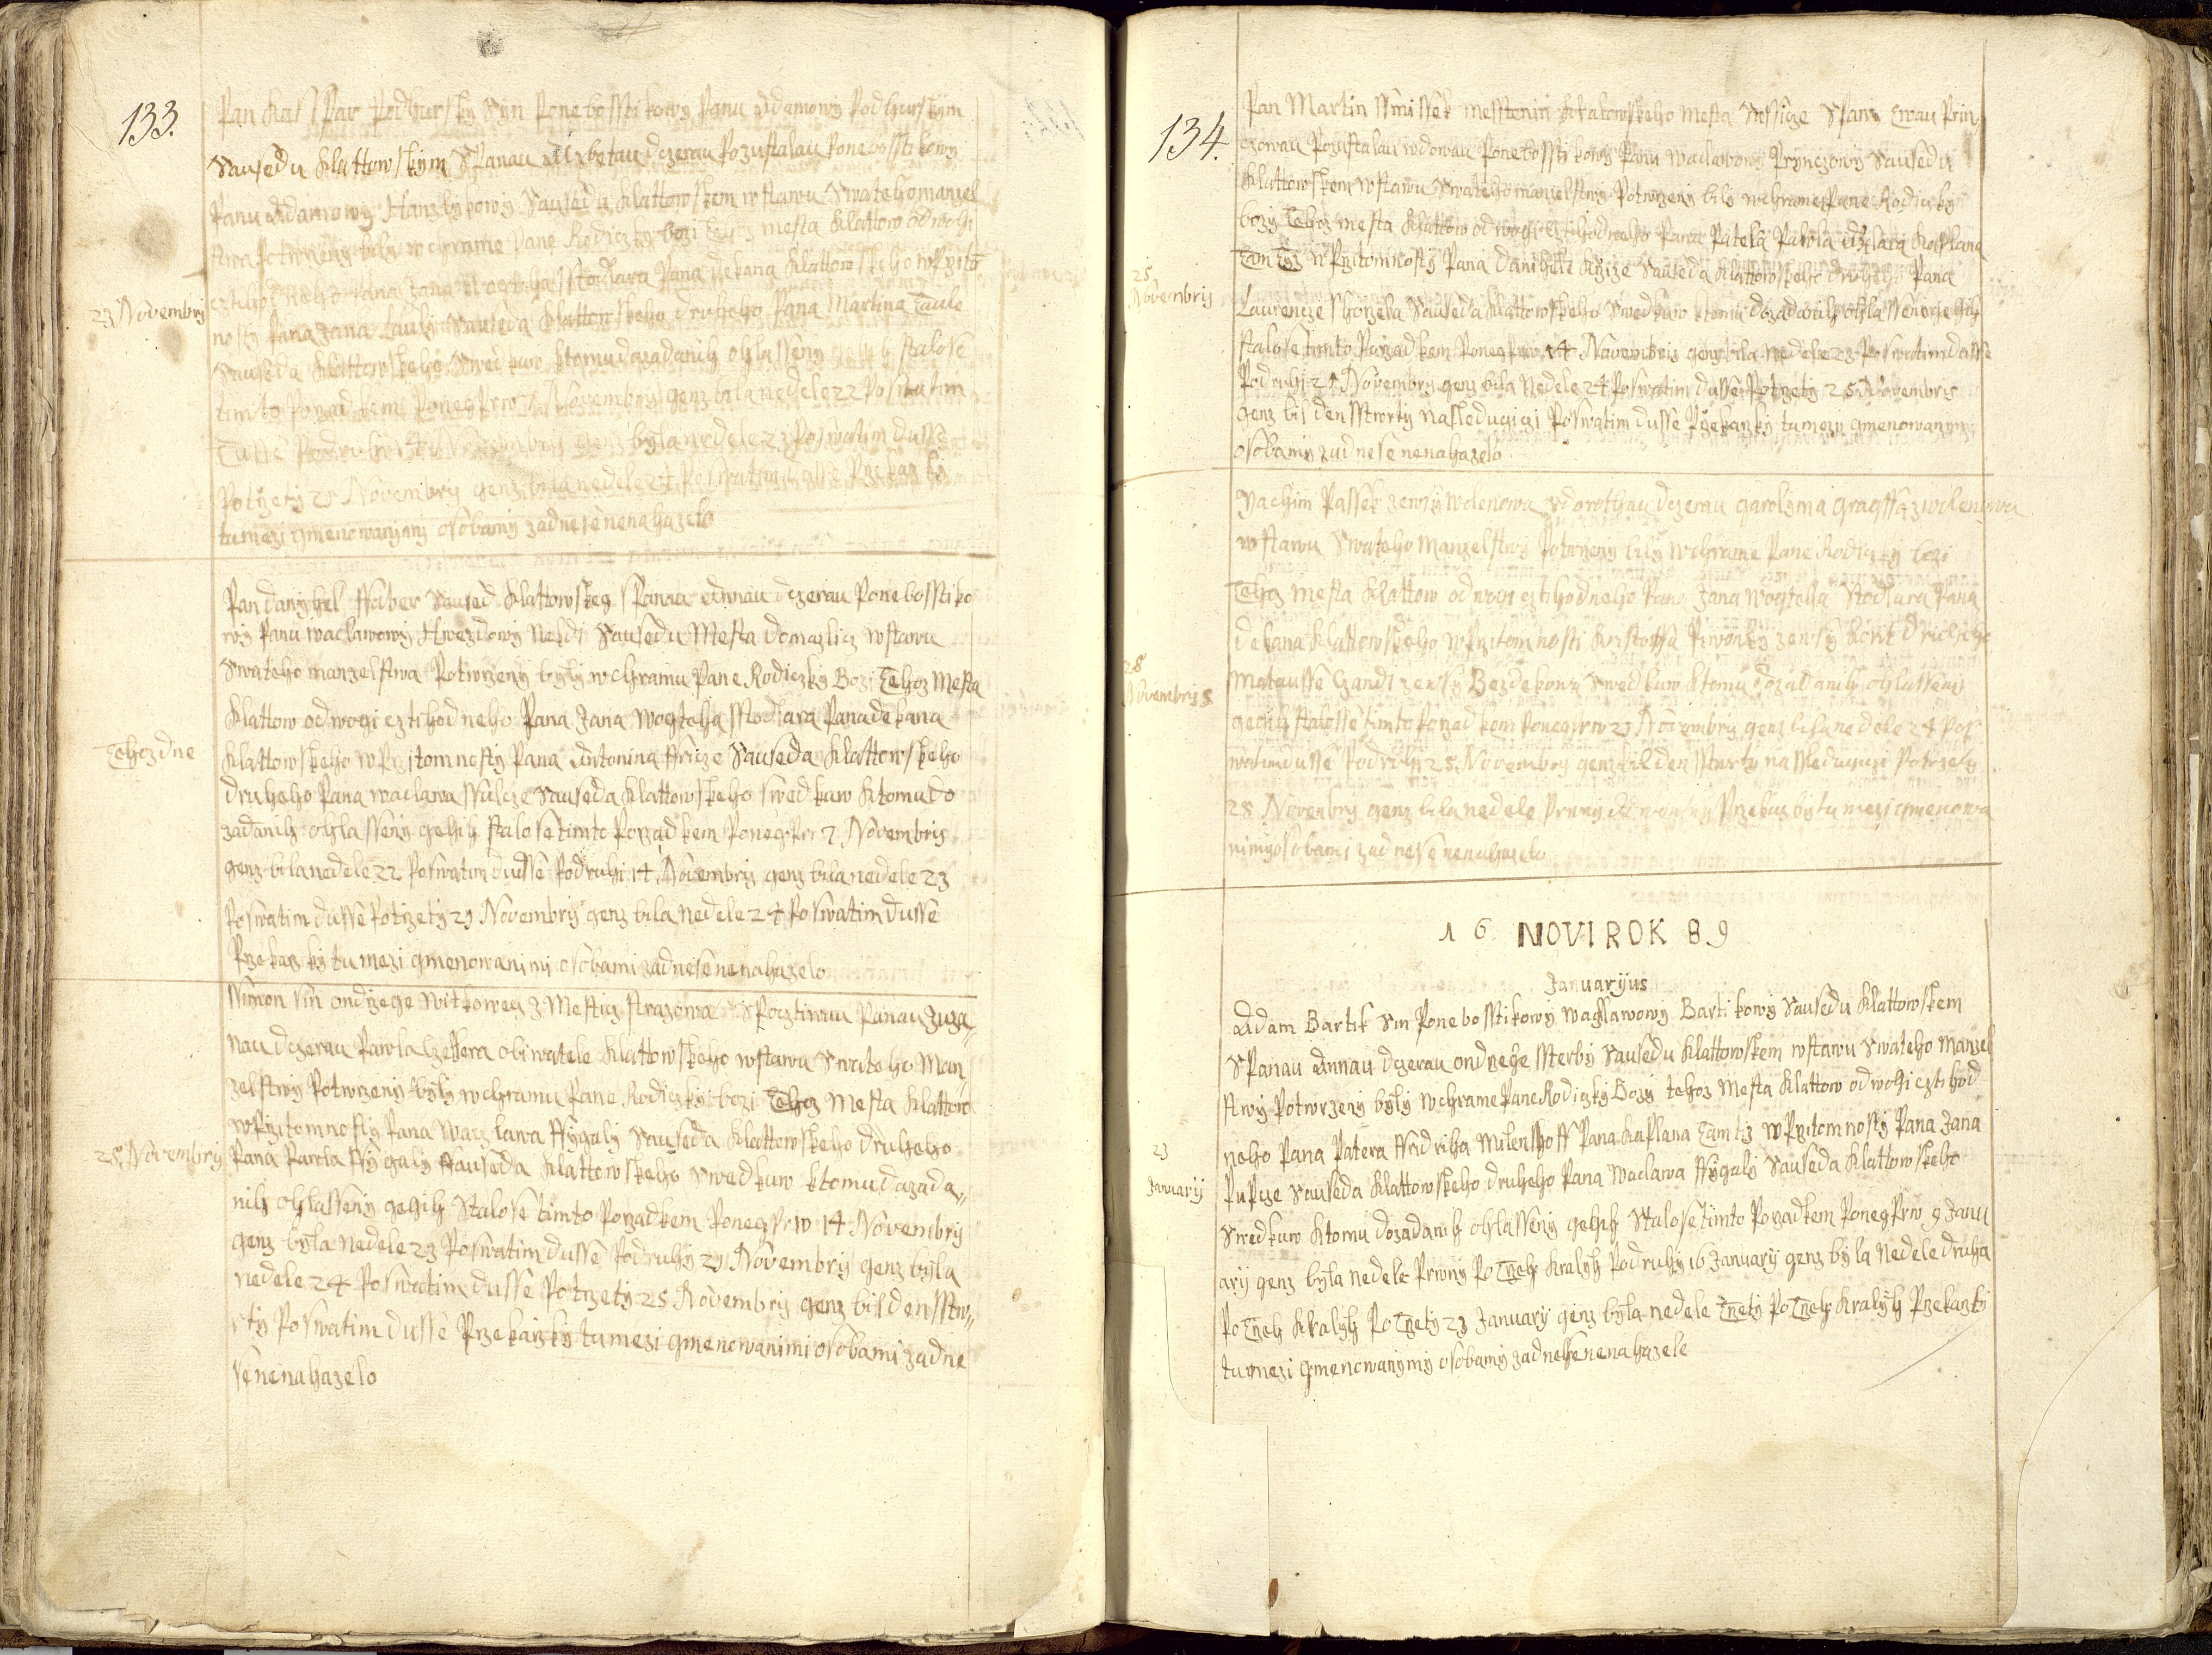 133.
Pan Kasspar Podhursky Syn Ponebosstikowy Panu Adamowy Podhurskym
Sausedu Klattowskym SPanau Alzbetau dczerau Pozustalau Ponebosstikowy
Panu Adamowy Hanzlykowy Sauseda Klattowskem wstawu Swatehomanzel
stwa Potwrzeny byly w chrame Pane Rodiczky bozi Tehoz mesta Klattow odwogi
cztihodneho Pana Jana Wogtecha Stodlara Pana dekana Klattowskeho wPrzito
23 Novembrij
nosty Pana Jana Lauly Sauseda Klattowskeho druheho Pana Martina Taule
Sauseda Klattowskeho Swedkuw ktomu dozadanih ohlasseny gegih stalose
timto Porzadkem Poneg Prw 7 Novembry genz bila nedele 22 Poswatim
Dusse Podruhy 14 Novembris genz byla nedele 23 Poswatim dusse
Potrzety 21 Novembrij genz bila nedele 24 Poswatim dusse Przekazky
tu mezi gmenowanymy osobamy zadnesenenahazelo
Pan danyhel Faber Saused Klattowskeg SPanau Annau dczerau Ponebosstiko
wy Panu waclawowy Hwezdowy Neldi Sausedu Mesta domazlicz wstawu
Swateho manzelstwa Potwrzeny byly w chramu Pane Rodiczky Bozi Tehoz Mesta
Klattow odwogi cztihodneho Pana Jana Wogteha Stodlara Pana dekana
Tehoz dne
Klattowskeho wPrzitomnosty Pana Antonina ffricze Sauseda Klattowskeho
druheho Pana waclawa ssulcze Sauseda Klattowskeho swedkuw Ktomu do
zadanih ohlasseny gehih stalo se timto Porzadkem Poneg Prw 7 Novembris
genz bila nedele 22 Poswatim dusse Podruhi 14 Novembrij genz bila nedele 23
Poswatim dusse Potrzety 21 Novembrij genz bila Nedele 24 Poswatim dusse
Przekazky tu mezi gmenowanimi osobami zadnesenenahazelo
Ssimon Sin ondrzege Witkoweg z Mestig strazowa SPocztiwau Panau Zuza„
nau dczerau Pawla Czellera obiwatele Klattowskeho wstawu Swateho Man„
zelstwy Potwrzeny byly wchramu Pane Rodiczky bozi Tehoz Mesta Klattow
wPrzitomnosty Pana Waczlawa Ffygaly Sauseda Klattowskeho druheho
25 Novembrij
Pana Pawla Ffygaly Sauseda Klattowskeho Swedkuw ktomu dozada„
nih ohlasseny gehih Stalose timto Porzadkem Poneg Prw 14 Novembrij
genz byla Nedele 23 Poswatim dusse Podruhy 21 Novembrij genz byla
Nedele 24 Poswatim dusse Potrzety 25 Novembris genz bil den sstw„
rty Poswatim dusse Przekazky tu mezi gmenowanimi osobami zadne
senenahazelo
134.
Pan Martin ssmissek messtenin Mesta Sussicze SPani Ewau Prin„
czowau Pozustalau wdowau Ponebosstikowy Panu Waclawowy Prynczowy Sausedu
Klattowskem wstawu Swateho manzelstwy Potwrzeny bily wchrame Pane Rodiczky
bozy Tehoz mesta Klattow odwogi cztihodneho Pana Patera Pawla Kaplana
25 Novembris
Tamtez wPrzitomnosty Pana Sauseda Klattowskeho druheho Pana
Laurencze Skorzela Sauseda Klattowskeho Swedkuw ktomu dozadanih ohlasseny gehih
stalose timto Porzadkem Poneg Prw 14 Novembris genz bila Nedele 23 Poswatim dusse
Podruhi 21 Novembry genz bila Nedele 24 Poswatim dusse Potrzety 25 Novembris
genz bil den sstwrty nasledugigi Poswatim dusse Przekazky tu mezy gmenowanymy
osobamy zadnese nenahazelo
Jachim Passek zewsy wolenowa zdorothau dczerau z wolenowa
w stawu Swateho Manzelstwy Potwrzeny bily wchrame Pane Rodiczky bozi
Tehoz mesta Klattow odwogi cztihodneho Pana Jana Wogteha Stodlara Pana
dekana Klattowskeho wPrzitomnosti Kristoffa zewsy druheho
28 Novembris
Matausse zewsy Bezdekowa Swedkuw Ktomu dozadanih ohlasseni
gegih stalosse timto Porzadkem Poneg Prw 21 Novembris genz bila nedele 24 Pos
watim dusse Podruhy 25 Novembry genz bil den sstwrty nassledugigi Potrzety
28 Novembry genz bila nedele Prwny Adwentny Przekazky tu mezi gmenowa
nimy osobami zadnesenenahazelo
16 NOVI ROK 89
Januaryus
Adam Bartik Sin Ponebosstikowy waczlawowy Bartikowy Sausedu Klattowskem
SPanau Annau dczerau ondrzehe ssterby Sausedu Klattowskem wstawu Swateho Manzel
stwy Potwrzeny byly wchrame Pane Rodiczky Bozy tehoz Mesta Klattow odwogi cztihod
neho Pana Patera ffridriha Milenshoff Pana Kaplana Tamtz wPrzitomnosty Pana Jana
23 January
Pupcze Sauseda Klattowskeho druheho Pana Waclawa Ffygaly Sauseda Klattowskeho
Swedkuw Ktomu dozadanih ohlasseny gehih Stalose timto Porzadkem Poneg Prw 9 Janu
arij genz byla nedele Prwny Po Trzeh Kralyh Podruhy 16 Januarij genz byla Nedele druha
Po Trzeh Kralyh Po Trzety 23 January genz byla nedele Trzety Po Trzeh Kralyh Przekazky
tu mezi gmenowanymy osobamy zadnesenenahazele